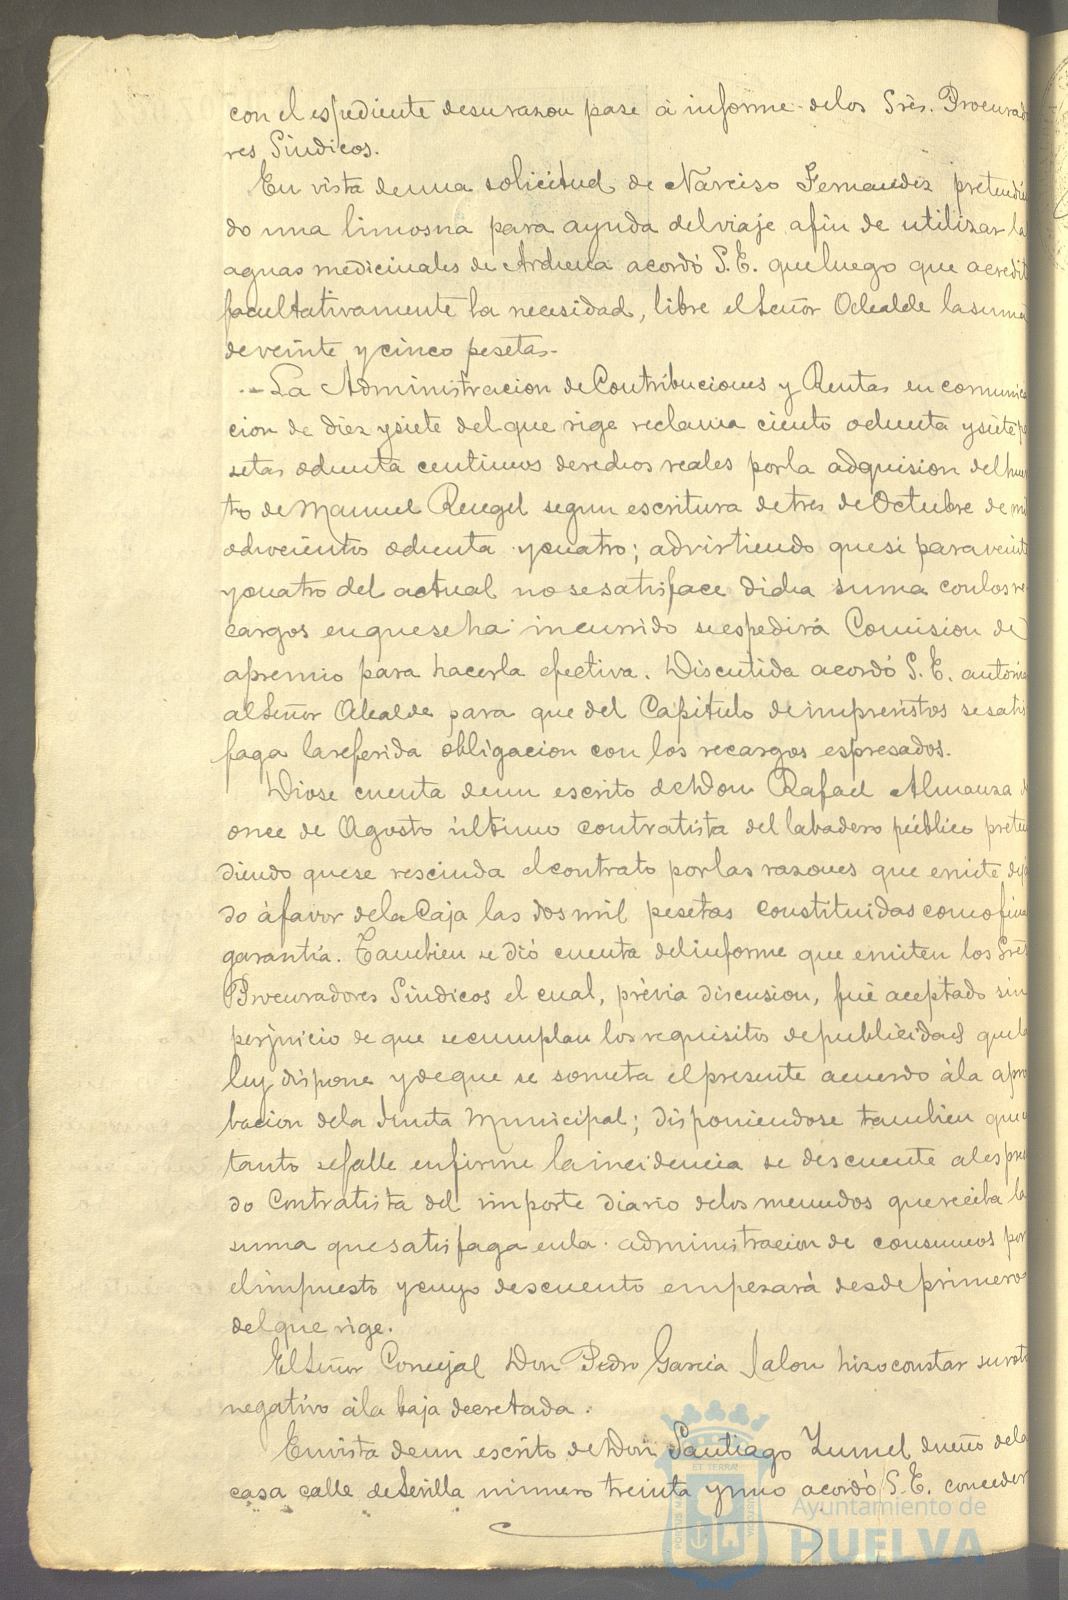 con el espediente desu razon pase á informe delos Srēs. Procurado
res Sindicos.
En vista deuna solicitud de Narciso Fernandez pretendien
do una limosna para ayuda del viaje afin de utilizar la
aguas medicinales de Archena acordó S.E. queluego que acredit
facultativamente la necesidad, libre el Señor Alcalde lasuma
deveinte y cinco pesetas.
La Administracion de Contribuciones y Rentas en comunica
cion de diez ysiete del que rige reclama ciento ochenta ysiete pe
setas ochenta centimos derechos reales porla adquision del huer
to de Manuel Rengel segun escritura detres de Octubre de mil
ochocientos ochenta ycuatro; advirtiendo quesi paraveinte
ycuatro del actual no sesatisface dicha suma conlosre
cargos enquese ha incurrido seespedirá Comision de
apremio para hacerla efectiva. Discutida acordó S.E. autoriza
alSeñor Alcalde para que del Capitulo deimprevistos sesatis
faga lareferida obligacion con los recargos espresados.
Diose cuenta deun escrito deDon Rafael Almanza de
once de Agosto último contratista del labadero público preten
diendo quese rescinda elcontrato porlas razones que emite dejan
do áfavor dela Caja las dos mil pesetas constituidas comofianza
garantía. Tambien se dió cuenta delinforme que emiten los Srēs
Procuradores Sindicos el cual, prévia discusion, fué aceptado sin
perjuicio de que secumplan los requisitos depublicidad quela
ley dispone ydeque se someta elpresente acuerdo ála apro
bacion dela Junta Municipal; disponiendose tambien que
tanto sefalle enfirme laincidencia se descuente alespresa
do Contratista del importe diario delos menudos quereciba la
suma quesatisfaga enla administracion de consumos por
elimpuesto ycuyo descuento empezará desdeprimeros
delque rige.
ElSeñor Concejal Don Pedro Garcia Jalon hizoconstar suvoto
negativo ála baja decretada.
Envista deun escrito deDon Santiago Zumel dueño dela
casa calle deSevilla número treinta yuno acordó S.E. conceder
ET TERRÆ
PORTUS MARIS
CUSTODIA
Ayuntamiento de
HUELVA